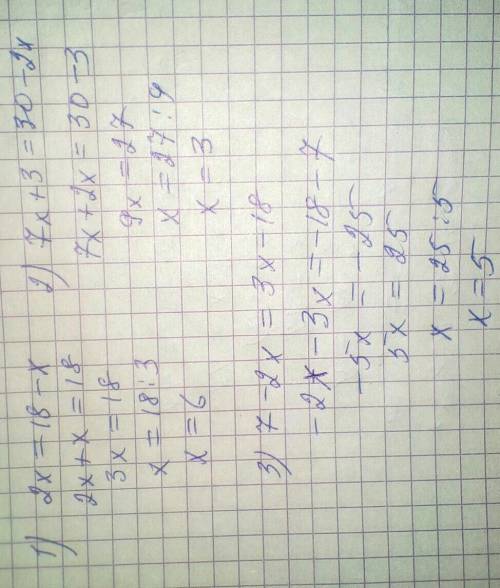 1) 2x = 18 - x
2x + x = 18
3x = 18
x = 18 : 3
x = 6
2) 7x + 3 = 30 - 2x
7x + 2x = 30 - 3
9x = 27
x = 27 : 9
x = 3
3) 7 - 2x = 3x - 18
-2x - 3x = -18 - 7
-5x = -25
5x = 25
x = 25 : 5
x = 5